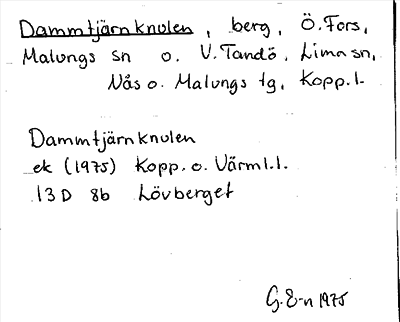 Dammtjärnknulen, berg, Ö. Fors,
Malungs sn o. V. Tandö, Lima sn,
Nås o. Malungs tg, Kopp. l.
Dammtjärnknulen
ek (1975) Kopp. o. Värml. l.
13 D 8b Lövberget
G. E-n 1975